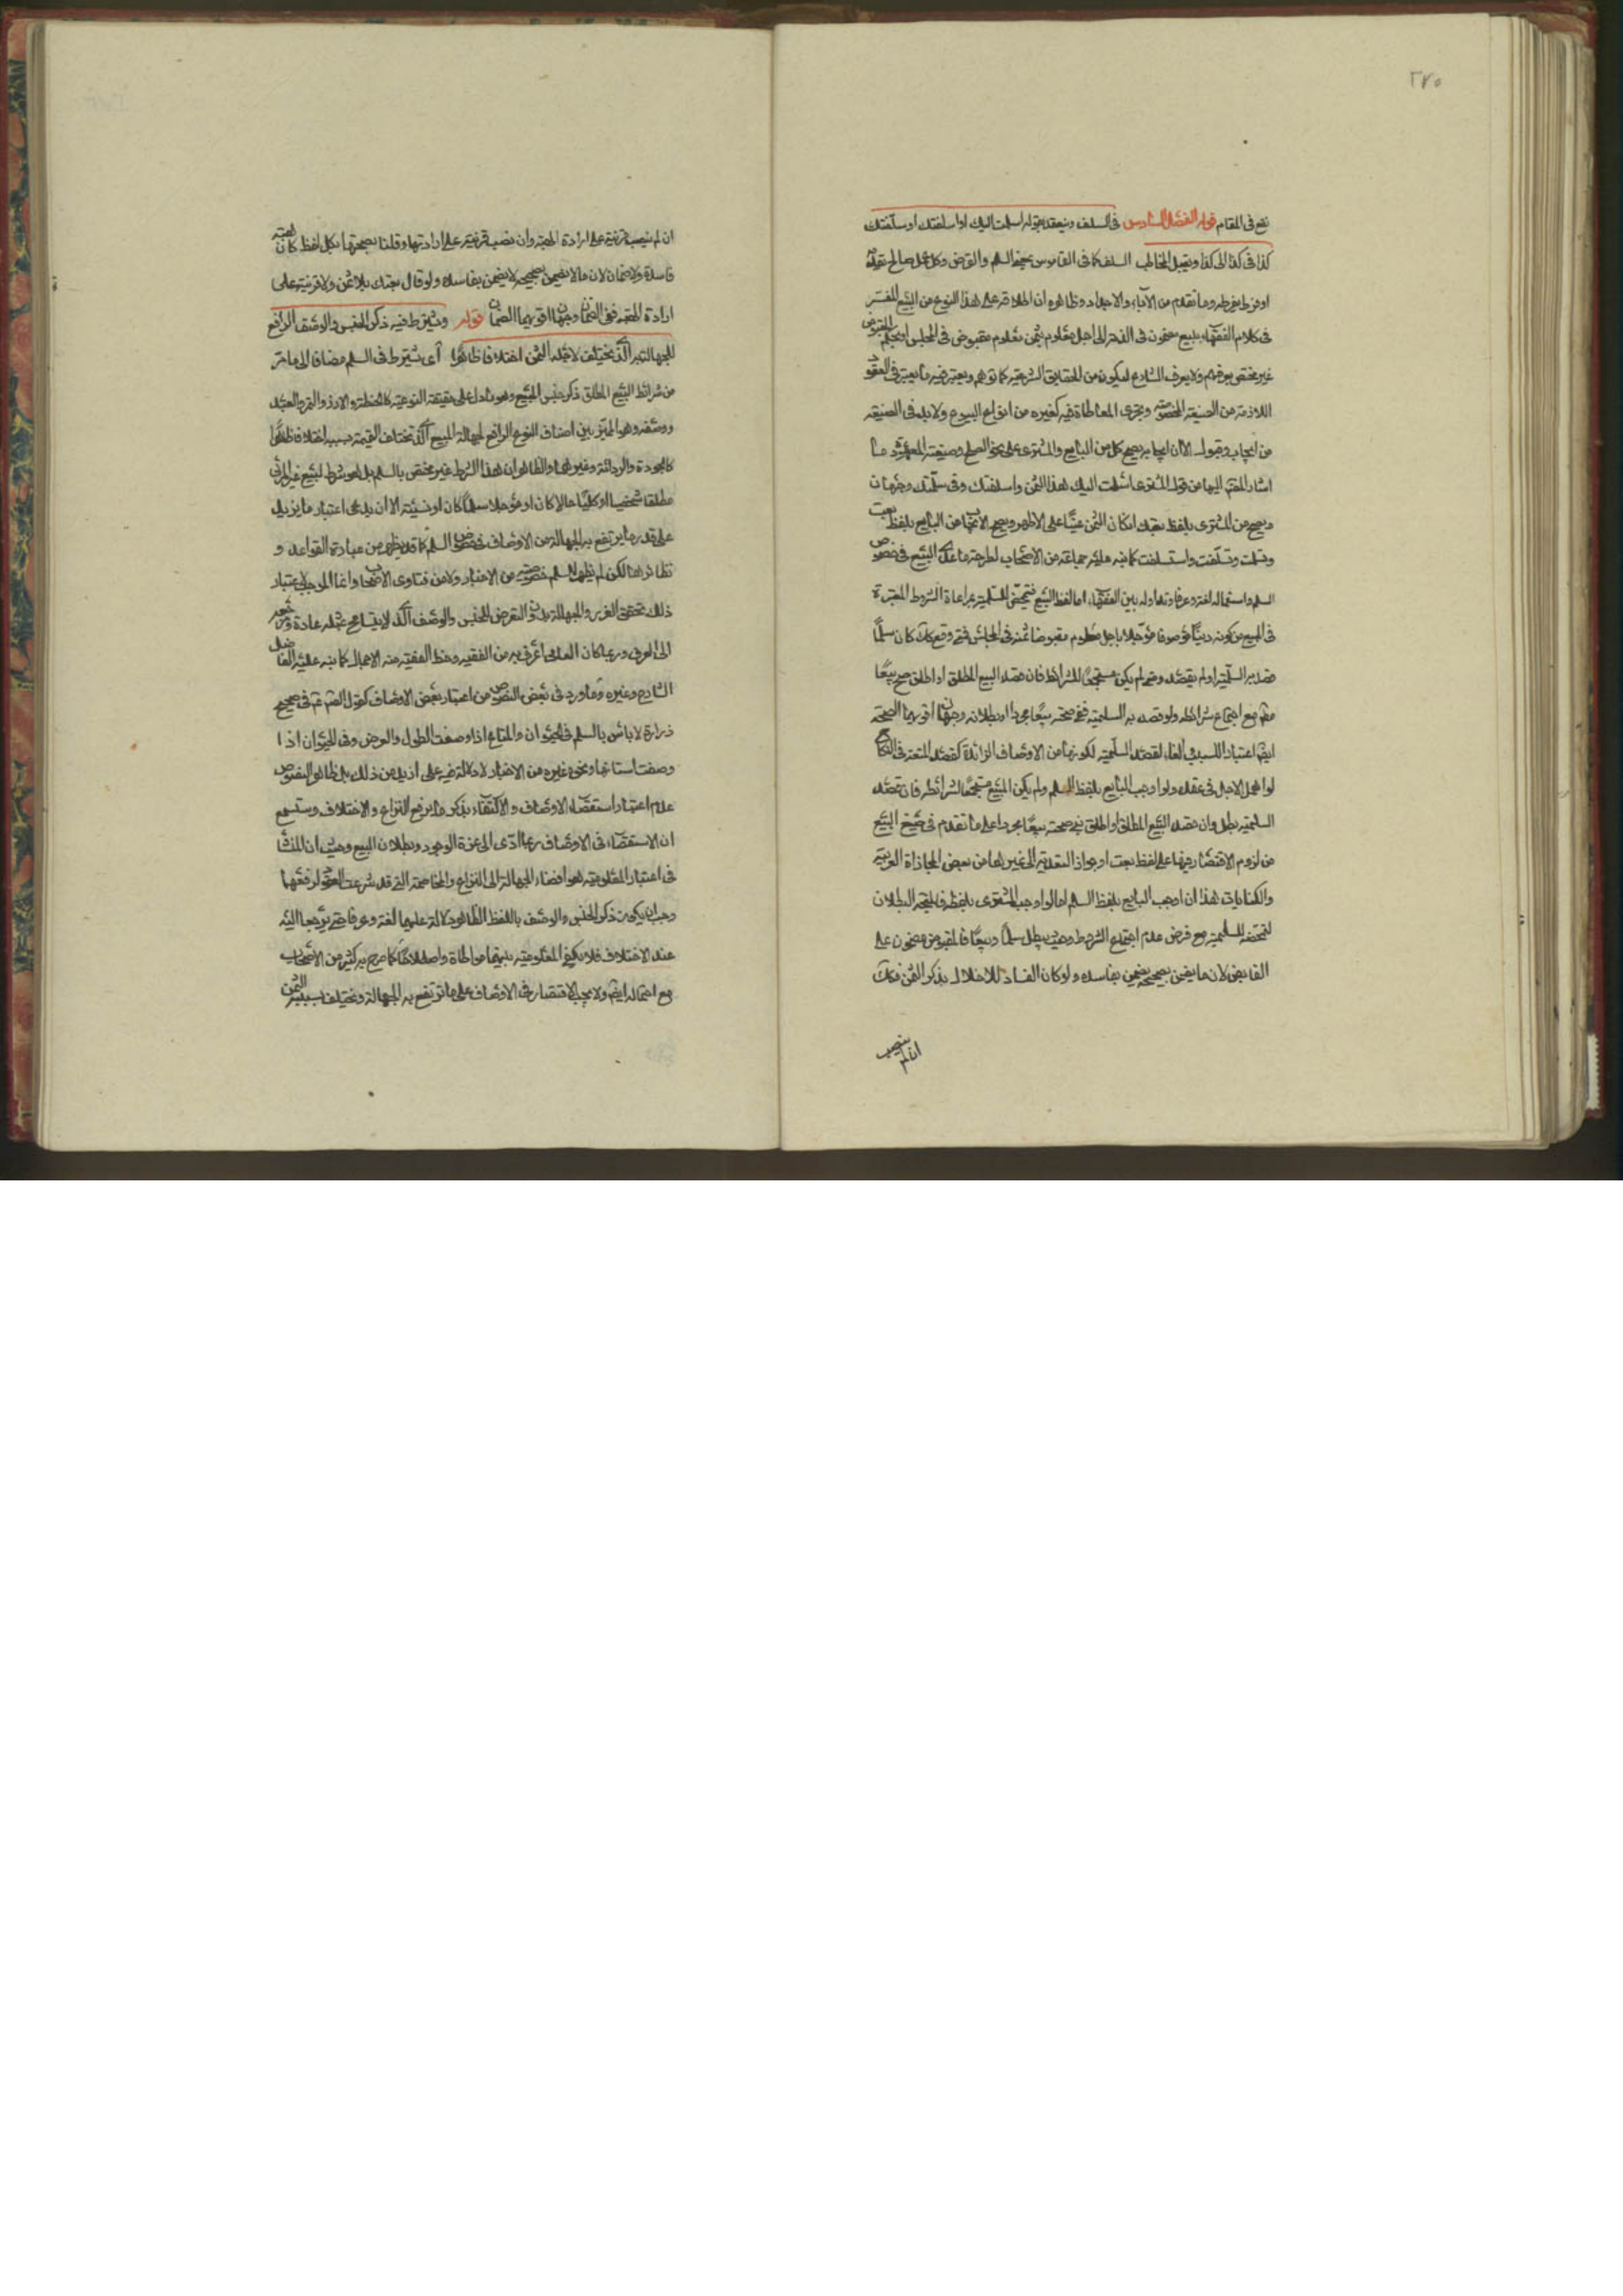 ٢٧٥
نفع في المقام قوله الفصل السادس في السلف وينعقد بقوله اسلمت اليك او اسلفتك او سلفتك
كذا في كذا الى كذا ويقبل المخاطب السلف كما في القاموس السلم والقرض وكل عمل صالح
او فرط يفرطه وما تقدم من الآباء والاجداد وظاهره ان اطلاقه على هذا النوع من البيع المفسر
في كلام الفقهاء ببيع مضمون في الذمة الى اجل معلوم بثمن معلوم مقبوض في المجلس او بحكم المقبوض
غير مختص بعرفهم ولا بعرف الشارع ليكون من الحقايق الشرعية كما توهم ويعتبر فيه ما يعتبر في العقود
اللازمة من الصيغة المخصوصة وتجرى المعاطاة فيه كغيره من انواع البيوع ولا بد في الصيغة
من ايجاب وقبول الا ان ايجابه يصح كل من البايع والمشترى على نحو الصلح وصيغته ما
اشار المصنف اليها من قول المشترى اسلمت اليك هذا الثمن واسلفتك وفي سلمتك وجهان
ويصح من المشترى بلفظ بعتك ان كان الثمن عينا على الاظهر ويصح الايجاب من البايع بلفظ بعت
وتسلمت وتسلفت واستلفت كما نبه عليه جماعة من الاصحاب لطرحته ما عدا البيع في خصوص
السلم واستعماله لغة وعرفا وتداوله بين الفقهاء اما لفظ البيع فتتحقق السلمية بمراعاة الشروط المعتبرة
في المبيع من كونه دينا موصوفا مؤجلا باجل معلوم مقبوضا ثمنه في المجلس فمتى وقع كك كان سلما
قصد به السلمية او لم يقصد ومتى لم يكن مستجمعا للشرائط فان قصد البيع المطلق او اطلق صح بيعا
مع اجتماع شرائطه ولو قصد به السلمية ففي صحته بيعا مجردا او بطلانه وجهان اقويهما الصحة
لو اخل الاجل في عقده ولو اوجب البايع بلفظ السلم ولم يكن المبيع مستجمعا لشرائطه فان قصد
السلمية بطل وان قصد البيع المطلق او اطلق ففي صحته بيعا مجردا على ما تقدم في صيغ البيع
من لزوم الاقتصار فيها على لفظ بعت او جواز التعدية الى غيرها من بعض المجازات القريبة
والكنايات هذا ان اوجب البايع بلفظ السلم اما لو اوجب المشترى بلفظه فالمتجه البطلان
لتمحضه للسلمية مع فرض عدم اجتماع الشروط وحيث يبطل سلما وبيعا فالمقبوض مضمون على
القابض لان ما يضمن بصحيحه يضمن بفاسده ولو كان الفساد للاخلال بذكر الثمن فكك
ان لم ينصب
ان لم ينصب قرينة على ارادة الهبة وان نصب قرينة على ارادتها وقلنا بصحتها بكل لفظ كان الهبة
فاسدة ولا ضمان لان ما لا يضمن بصحيحه لا يضمن بفاسده ولو قال بعتك بلا ثمن ولا قرينة على
ارادة الهبة ففي الضمان وجهان اقويهما الضمان قوله ويشترط فيه ذكر الجنس والوصف الرافع
للجهالة الذي يختلف لاجله الثمن اختلافا ظاهرا اى يشترط في السلم مضافا الى ما مر
من شرائط البيع المطلق ذكر جنس المبيع وهو ما دل على حقيقته النوعية كالحنطة والارز والتمر والعبد
ووصفه وهو المميز بين اصناف النوع الرافع لجهالة المبيع الذي تختلف القيمة بسببه اختلافا ظاهرا
كالجودة والردائة وغيرهما والظاهر ان هذا الشرط غير مختص بالسلم بل هو شرط لبيع غير المرئى
مطلقا شخصيا او كليا حالا كان او مؤجلا سلما كان او نسيئة الا ان يدعى اعتبار ما يزيد
على قدر ما يرتفع به الجهالة من الاوصاف في خصوص السلم كما قد يظهر من عبارة القواعد و
نظائرها لكن لم يظهر للسلم خصوصية من الاخبار ولا من فتاوى الاصحاب وانما الموجب لاعتبار
ذلك تحقق الغرر والجهالة بدون التعرض للجنس والوصف الذي لا يتسامح بمثله عادة ومرجعه
الى العرف وربما كان العامي اعرف به من الفقيه وحظ الفقيه منه الاجمال كما نبه عليه الفاضل
الشارح وغيره وما ورد في بعض النصوص من اعتبار بعض الاوصاف كقول الصادق ع في صحيح
زرارة لا باس بالسلم في الحيوان والمتاع اذا وصفت الطول والعرض وفي الحيوان اذا
وصفت اسنانها ونحوه غيره من الاخبار لا دلالة فيه على ازيد من ذلك بل ظاهر النصوص
عدم اعتبار استقصاء الاوصاف والاكتفاء بذكر ما يرفع النزاع والاختلاف وستسمع
ان الاستقصاء في الاوصاف ربما ادى الى عزة الوجود وبطلان البيع وحيث ان المنشأ
في اعتبار المعلومية هو افضاء الجهالة الى النزاع والمخاصمة التي قد شرعت العقود لرفعها
وجب ان يكون ذكر الجنس والوصف باللفظ الظاهر دلالة عليهما لغة وعرفا حتى يرجعا اليه
عند الاختلاف فلا يكفي المعلومية بينهما مواطاة واصطلاحا كما صرح به كثير من الاصحاب
مع احتماله ايضا ولا يجب الاقتصار في الاوصاف على ما ترتفع به الجهالة وتختلف بسببه الثمن